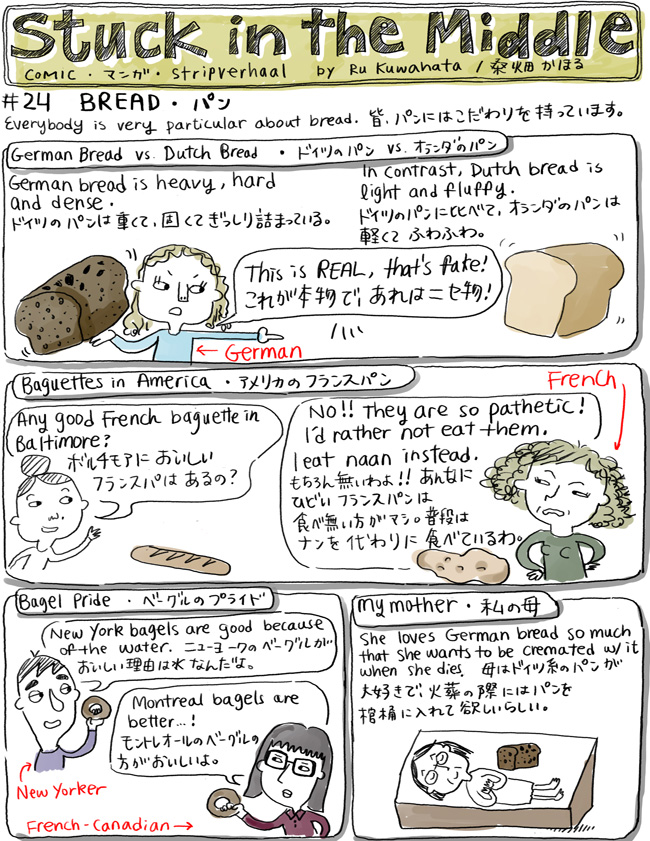 Stuck in the Middle
COMIC・マンガ・Stripverhaal by Ru Kuwahata / 桑畑かほる
#24 BREAD・パン
Everybody is very particular about bread. 皆、パンにはこだわりを持っています。
German Bread vs. Dutch Bread ・ドイツのパン vs. オランダのパン
German bread is heavy, hard
and dense.
ドイツのパンは重くて、固くてぎっしり詰まっている。
In contrast, Dutch bread is
light and fluffy.
ドイツのパンに比べて、オランダのパンは
軽くてふわふわ。
This is REAL, that's fake!
これが本物で、あれはニセ物!
← German
Baguettes in America・アメリカのフランスパン
Any good French baguette in
Baltimore?
ボルチモアにおいしい
フランスパはあるの?
No!! They are so pathetic!
I'd rather not eat them.
I eat naan instead.
もちろん無いわよ!! あんなに
ひどいフランスパンは
食べ無い方がマシ。普段は
ナンを代わりに食べているわ。
French
Bagel Pride・ベーグルのプライド
New York bagels are good because
of the water. ニューヨークのベーグルが
おいしい理由は水なんだよ。
Montreal bagels are
better...!
モントレオールのベーグルの
方がおいしいよ。
New Yorker
French-Canadian →
My mother・私の母
She loves German bread so much
that she wants to be cremated w/ it
when she dies. 母はドイツ系のパンが
大好きで、火葬の際にはパンを
棺桶に入れて欲しいらしい。